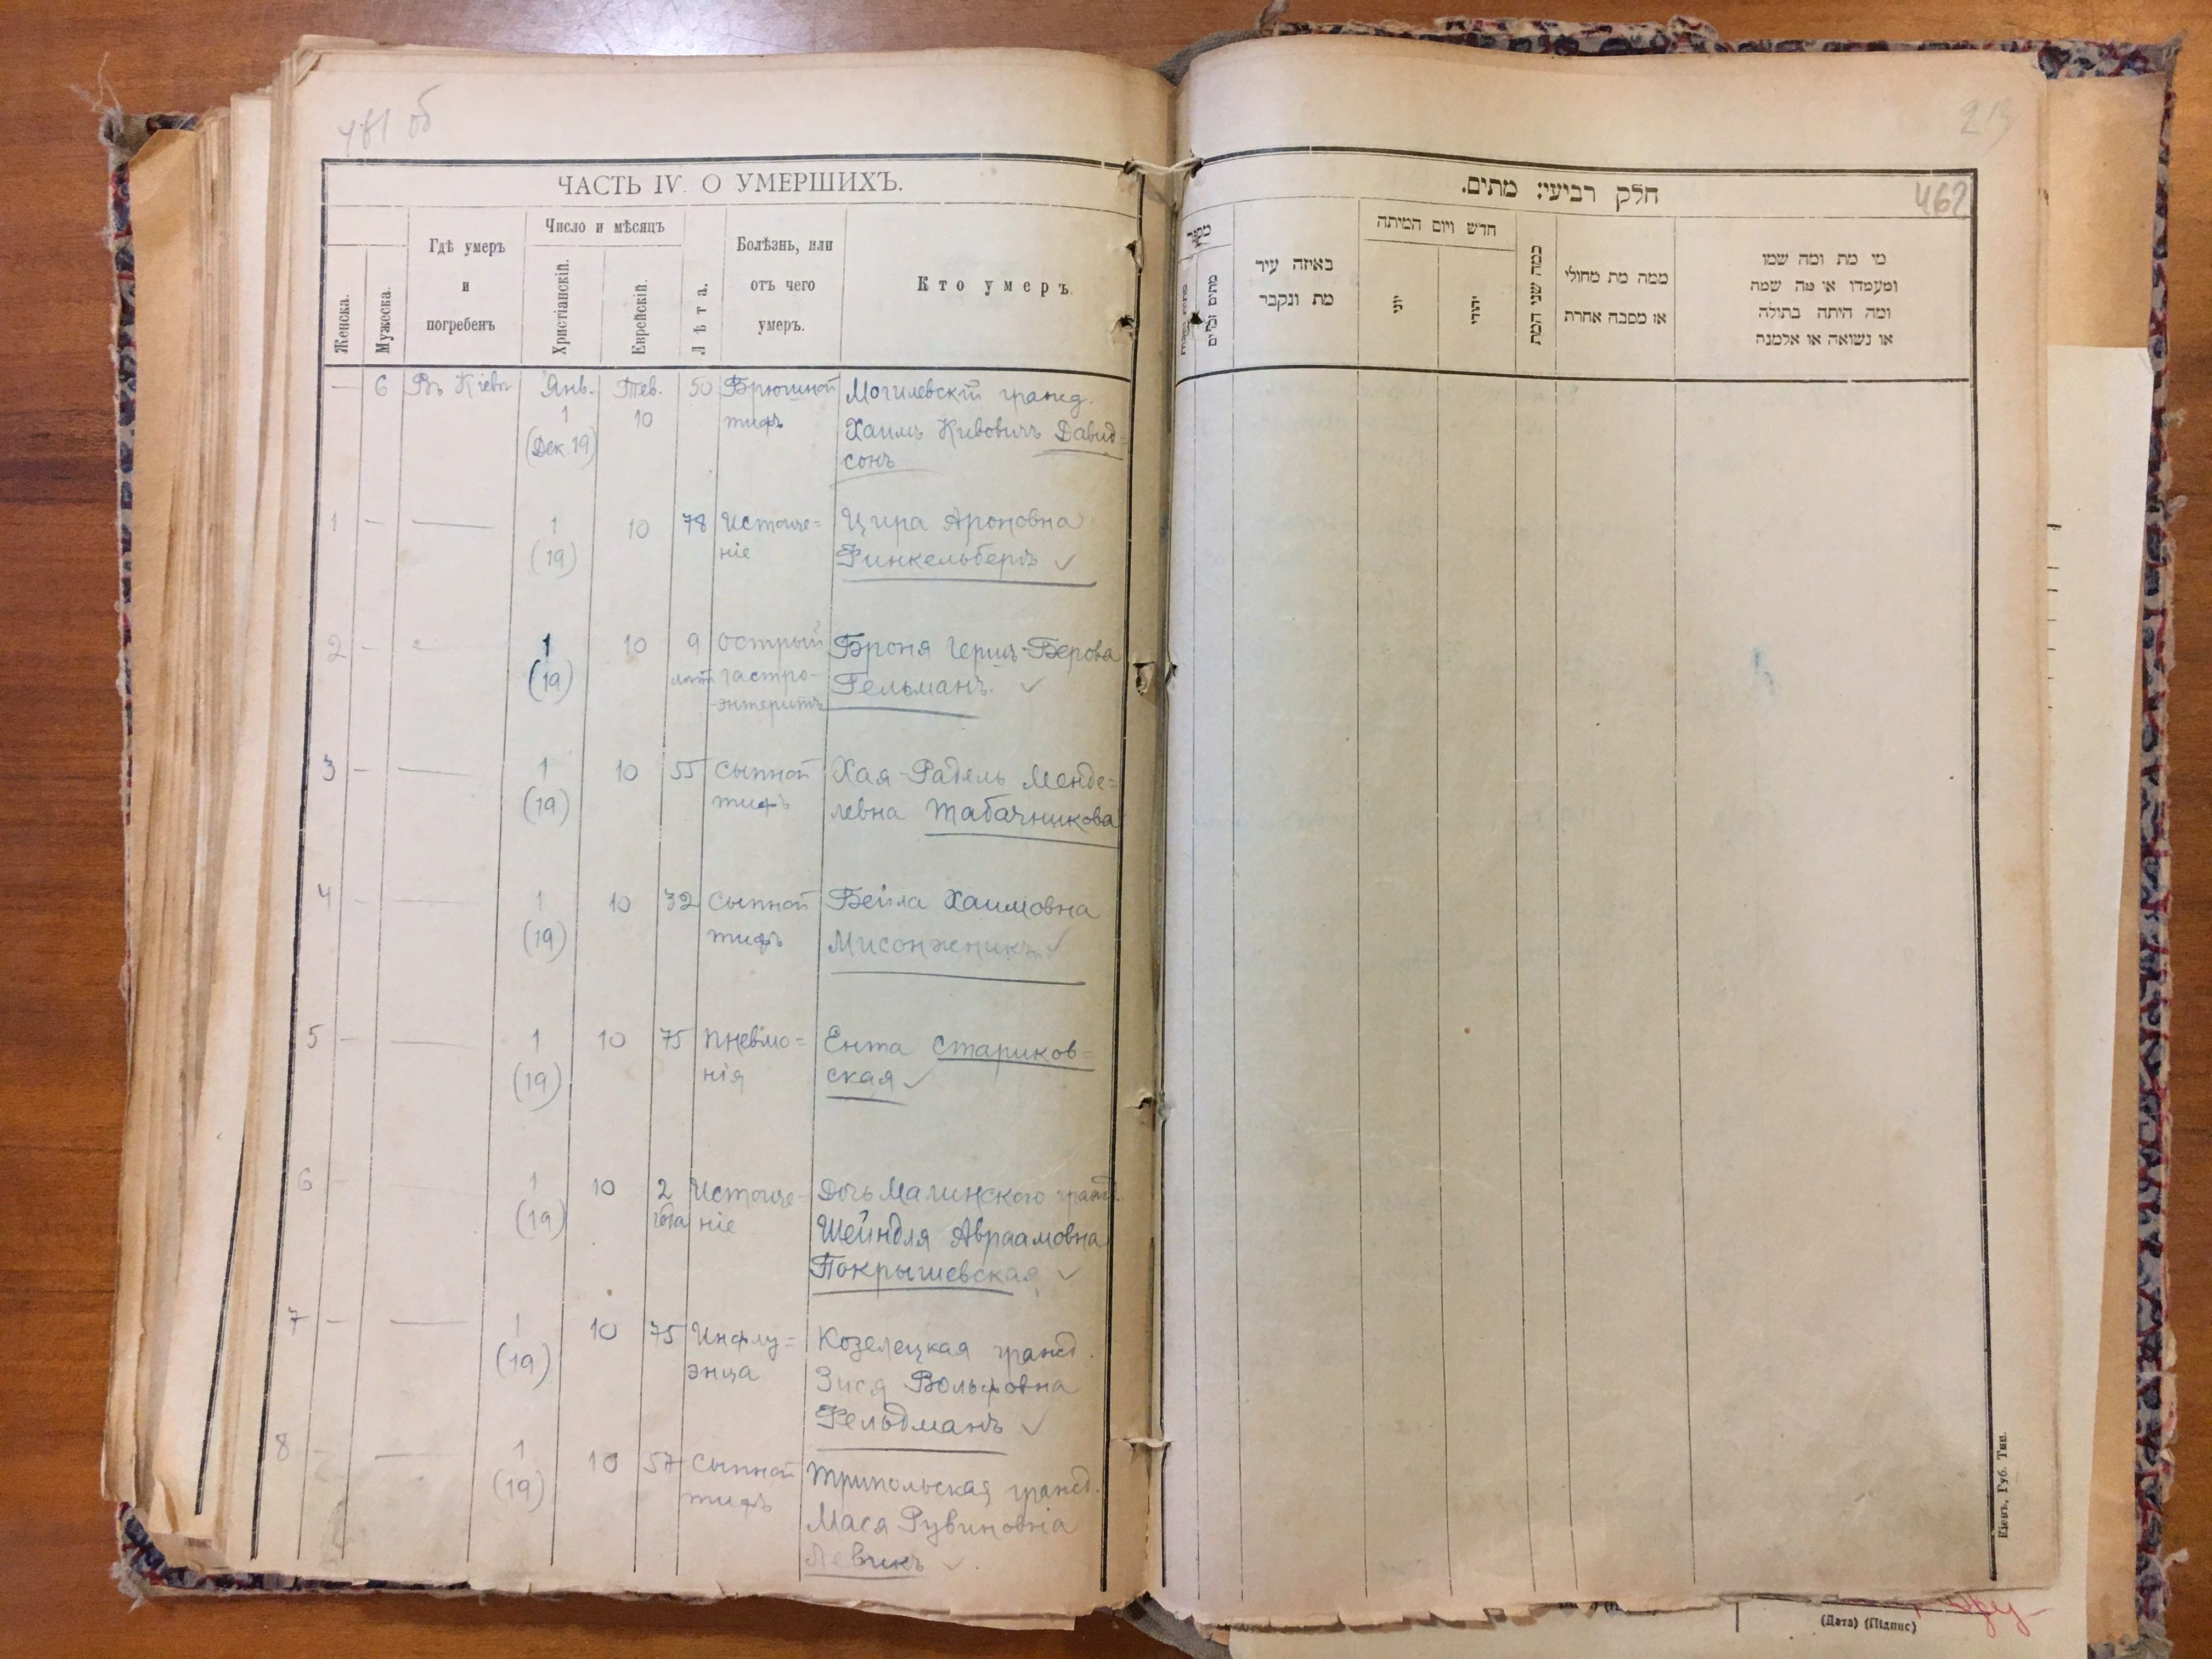 461 об
ЧАСТЬ IV. О УМЕРШИХЪ.
Женска.
Мужеска.
Гдѣ умеръ
и
погребенъ
Число и мѣсяцъ
Христіанскій.
Еврейскій.
Лѣта.
Болѣзнь, или
отъ чего
умеръ.
Кто умеръ.
— 6 Въ Кіевѣ Янв. Тев. 50 Брюшной Могилевскій гражд.
1 10 тифъ Хаимъ Кивовичъ Давид=
(Дек. 19) сонъ
1 - — 1 10 78 Истоще= Цира Ароновна
(19) ніе Финкельбергъ ✓
2 - — 1 10 9 Острый Броня Герш-Берова
(19) лѣтъ гастро- Гельманъ. ✓
-энтеритъ
3 - — 1 10 55 Сыпной Хая-Радель Менде=
(19) тифъ левна Табачникова
4 - — 1 10 32 Сыпной Бейла Хаимовна
(19) тифъ Мисонжникъ ✓
5 - — 1 10 75 Пневмо= Ента Стариков=
(19) нія ская ✓
6 - — 1 10 2 Истоще= Дочь Малинского гражд.
(19) года ніе Шейндля Авраамовна
Покрышевская ✓
7 - — 1 10 75 Инфлу= Козелецкая гражд.
(19) энца Зися Вольфовна
Фельдманъ ✓
8 - — 1 10 57 Сыпной Трипольская гражд.
(19) тифъ Мася Рувиновна
Левчикъ ✓
213
462
חלק רביעי: מתים.
מספר
מתים זכרים
באיזה עיר
מת ונקבר
חדש ויום המיתה
יוני
יהודי
כמה שני המת
ממה מת מחולי
או מסבה אחרת
מי מת ומה שמו
ומעמדו או מה שמה
ומה היתה בתולה
או נשואה או אלמנה
Кіевъ, Губ. Тип.
(Дата) (Підпис)